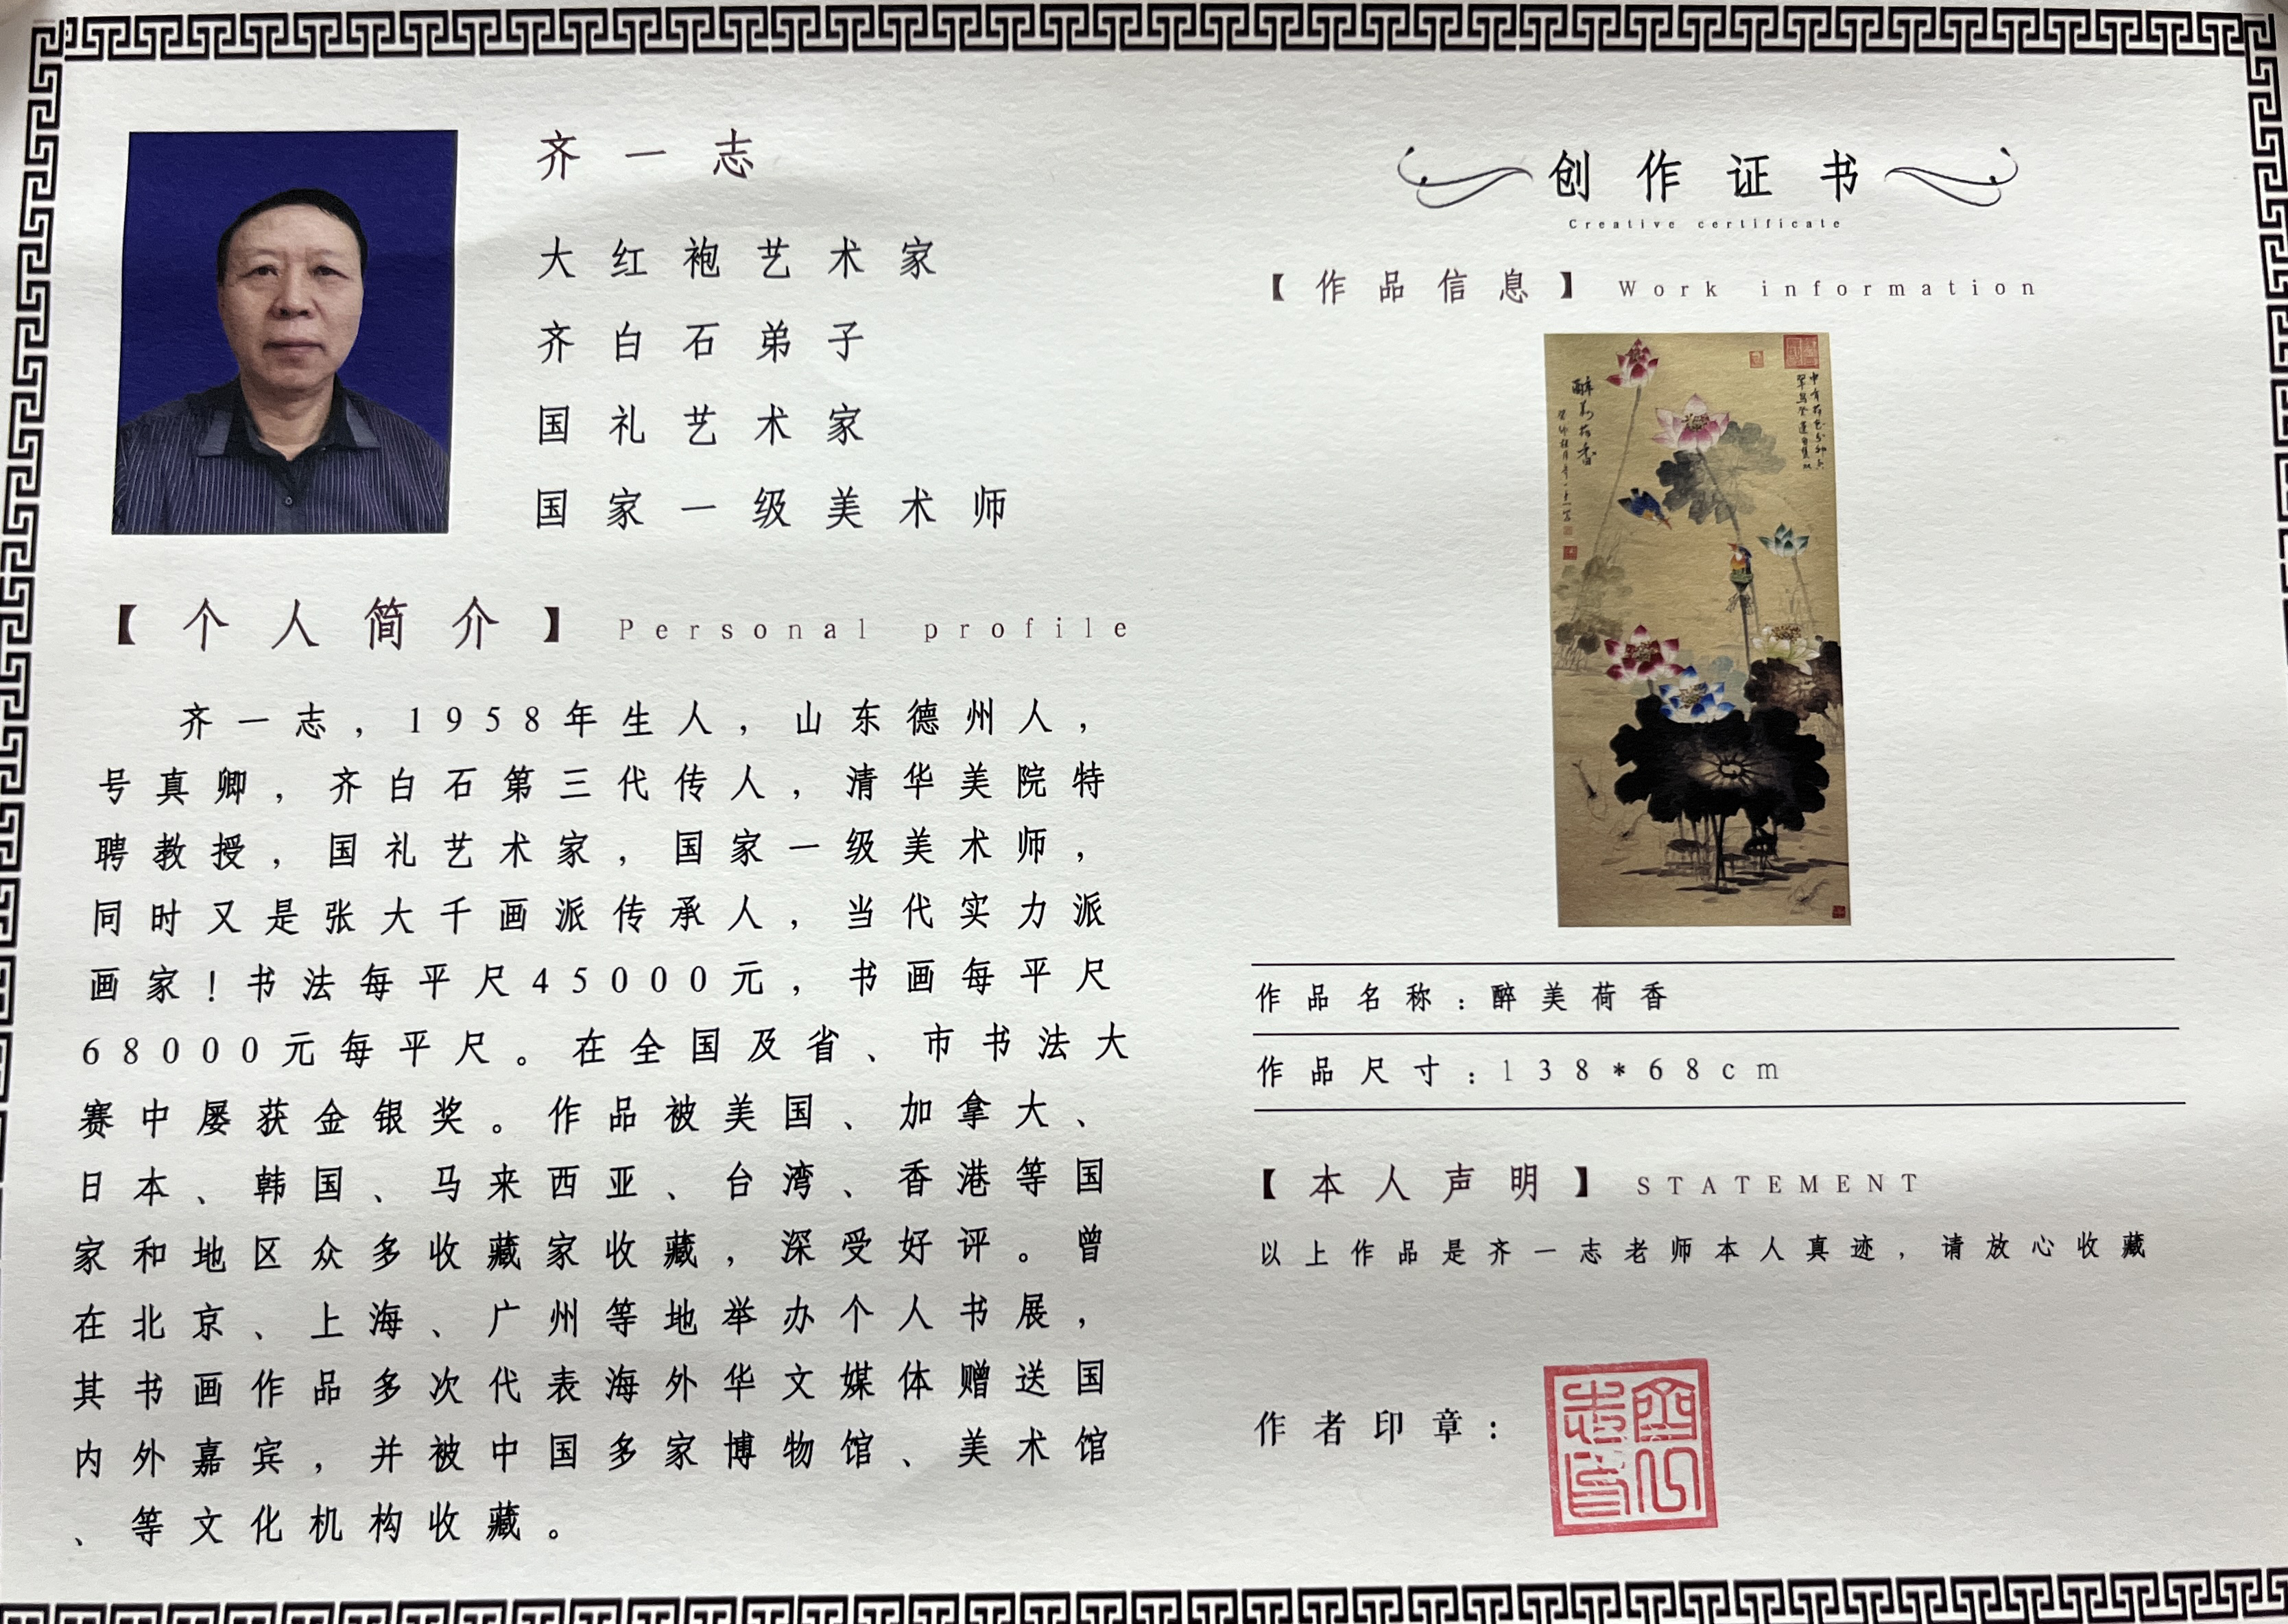 齐一志
大红袍艺术家
齐白石弟子
国礼艺术家
国家一级美术师
【个人简介】Personal profile
齐一志，1958年生人，山东德州人，
号真卿，齐白石第三代传人，清华美院特
聘教授，国礼艺术家，国家一级美术师，
同时又是张大千画派传承人，当代实力派
画家！书法每平尺45000元，书画每平尺
68000元每平尺。在全国及省、市书法大
赛中屡获金银奖。作品被美国、加拿大、
日本、韩国、马来西亚、台湾、香港等国
家和地区众多收藏家收藏，深受好评。曾
在北京、上海、广州等地举办个人书展，
其书画作品多次代表海外华文媒体赠送国
内外嘉宾，并被中国多家博物馆、美术馆
、等文化机构收藏。
创作证书
Creative certificate
【作品信息】Work information
作品名称：醉美荷香
作品尺寸：138*68cm
【本人声明】STATEMENT
以上作品是齐一志老师本人真迹，请放心收藏
作者印章：